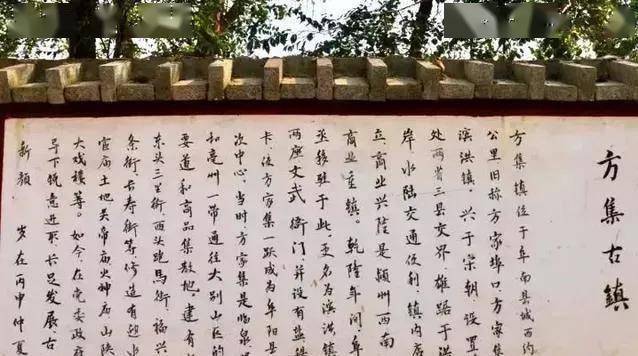 方集古鎮
方集镇位于阜南县城西约
公里旧称方家埠口方家集
滨洪镇，兴于宋朝设置
处两省三县交界雄踞于洪
岸，水陆交通便利镇内店
立，商业兴隆是颍州西南
商业重镇。乾隆年间阜
丞移驻于此，更名为滨洪镇
两座文武衙门并设有盐
卡，使方家集一跃成为阜阳县
次中心，当时方家集是临泉
和亳州一带通往大别山区的
要道和商品集散地。建有
东头三里街，西头跑马街，福兴
条街，长寿街等修造有魁
官庙土地关帝庙火神庙山陕
大戏楼等。如今，在党委政府
导下锐意进取，长足发展古
新颜 岁在丙申仲夏